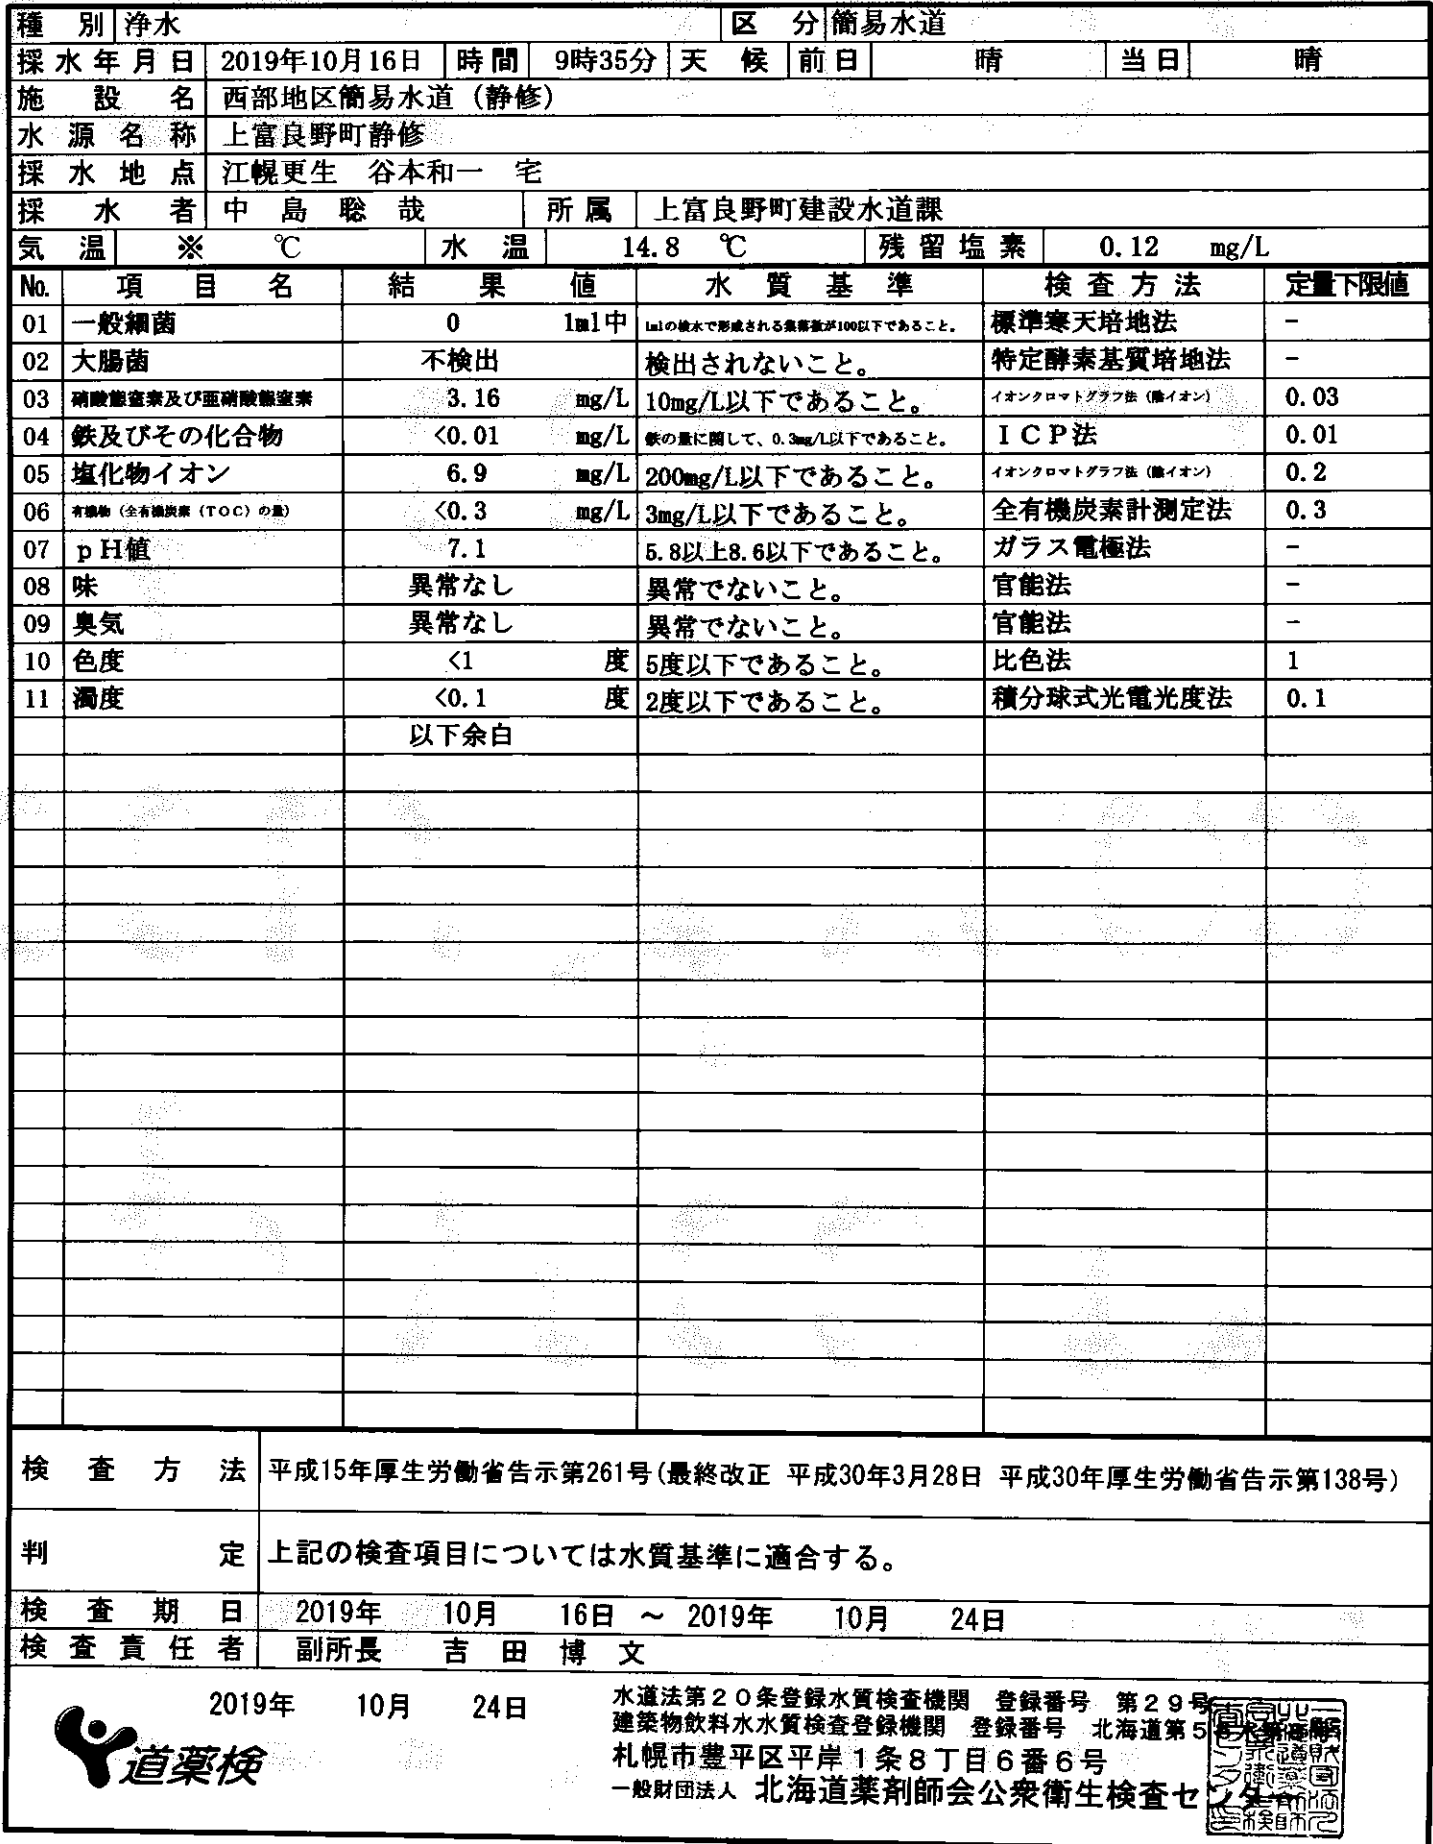 種別 浄水 区分 簡易水道
採水年月日 2019年10月16日 時間 9時35分 天候 前日 晴 当日 晴
施設名 西部地区簡易水道（静修）
水源名称 上富良野町静修
採水地点 江幌更生 谷本和一 宅
採水者 中島聡哉 所属 上富良野町建設水道課
気温 ※ ℃ 水温 14.8 ℃ 残留塩素 0.12 mg/L
No. 項目名 結果値 水質基準 検査方法 定量下限値
01 一般細菌 0 1ml中 1mlの検水で形成される集落数が100以下であること。 標準寒天培地法 -
02 大腸菌 不検出 検出されないこと。 特定酵素基質培地法 -
03 硝酸態窒素及び亜硝酸態窒素 3.16 mg/L 10mg/L以下であること。 イオンクロマトグラフ法（陰イオン） 0.03
04 鉄及びその化合物 <0.01 mg/L 鉄の量に関して、0.3mg/L以下であること。 ＩＣＰ法 0.01
05 塩化物イオン 6.9 mg/L 200mg/L以下であること。 イオンクロマトグラフ法（陰イオン） 0.2
06 有機物（全有機炭素（ＴＯＣ）の量） <0.3 mg/L 3mg/L以下であること。 全有機炭素計測定法 0.3
07 ｐＨ値 7.1 5.8以上8.6以下であること。 ガラス電極法 -
08 味 異常なし 異常でないこと。 官能法 -
09 臭気 異常なし 異常でないこと。 官能法 -
10 色度 <1 度 5度以下であること。 比色法 1
11 濁度 <0.1 度 2度以下であること。 積分球式光電光度法 0.1
以下余白
検査方法 平成15年厚生労働省告示第261号(最終改正 平成30年3月28日 平成30年厚生労働省告示第138号)
判定 上記の検査項目については水質基準に適合する。
検査期日 2019年 10月 16日 ～ 2019年 10月 24日
検査責任者 副所長 吉田博文
2019年 10月 24日
水道法第２０条登録水質検査機関 登録番号 第２９号
建築物飲料水水質検査登録機関 登録番号 北海道第５
札幌市豊平区平岸１条８丁目６番６号
一般財団法人 北海道薬剤師会公衆衛生検査センター
道薬検